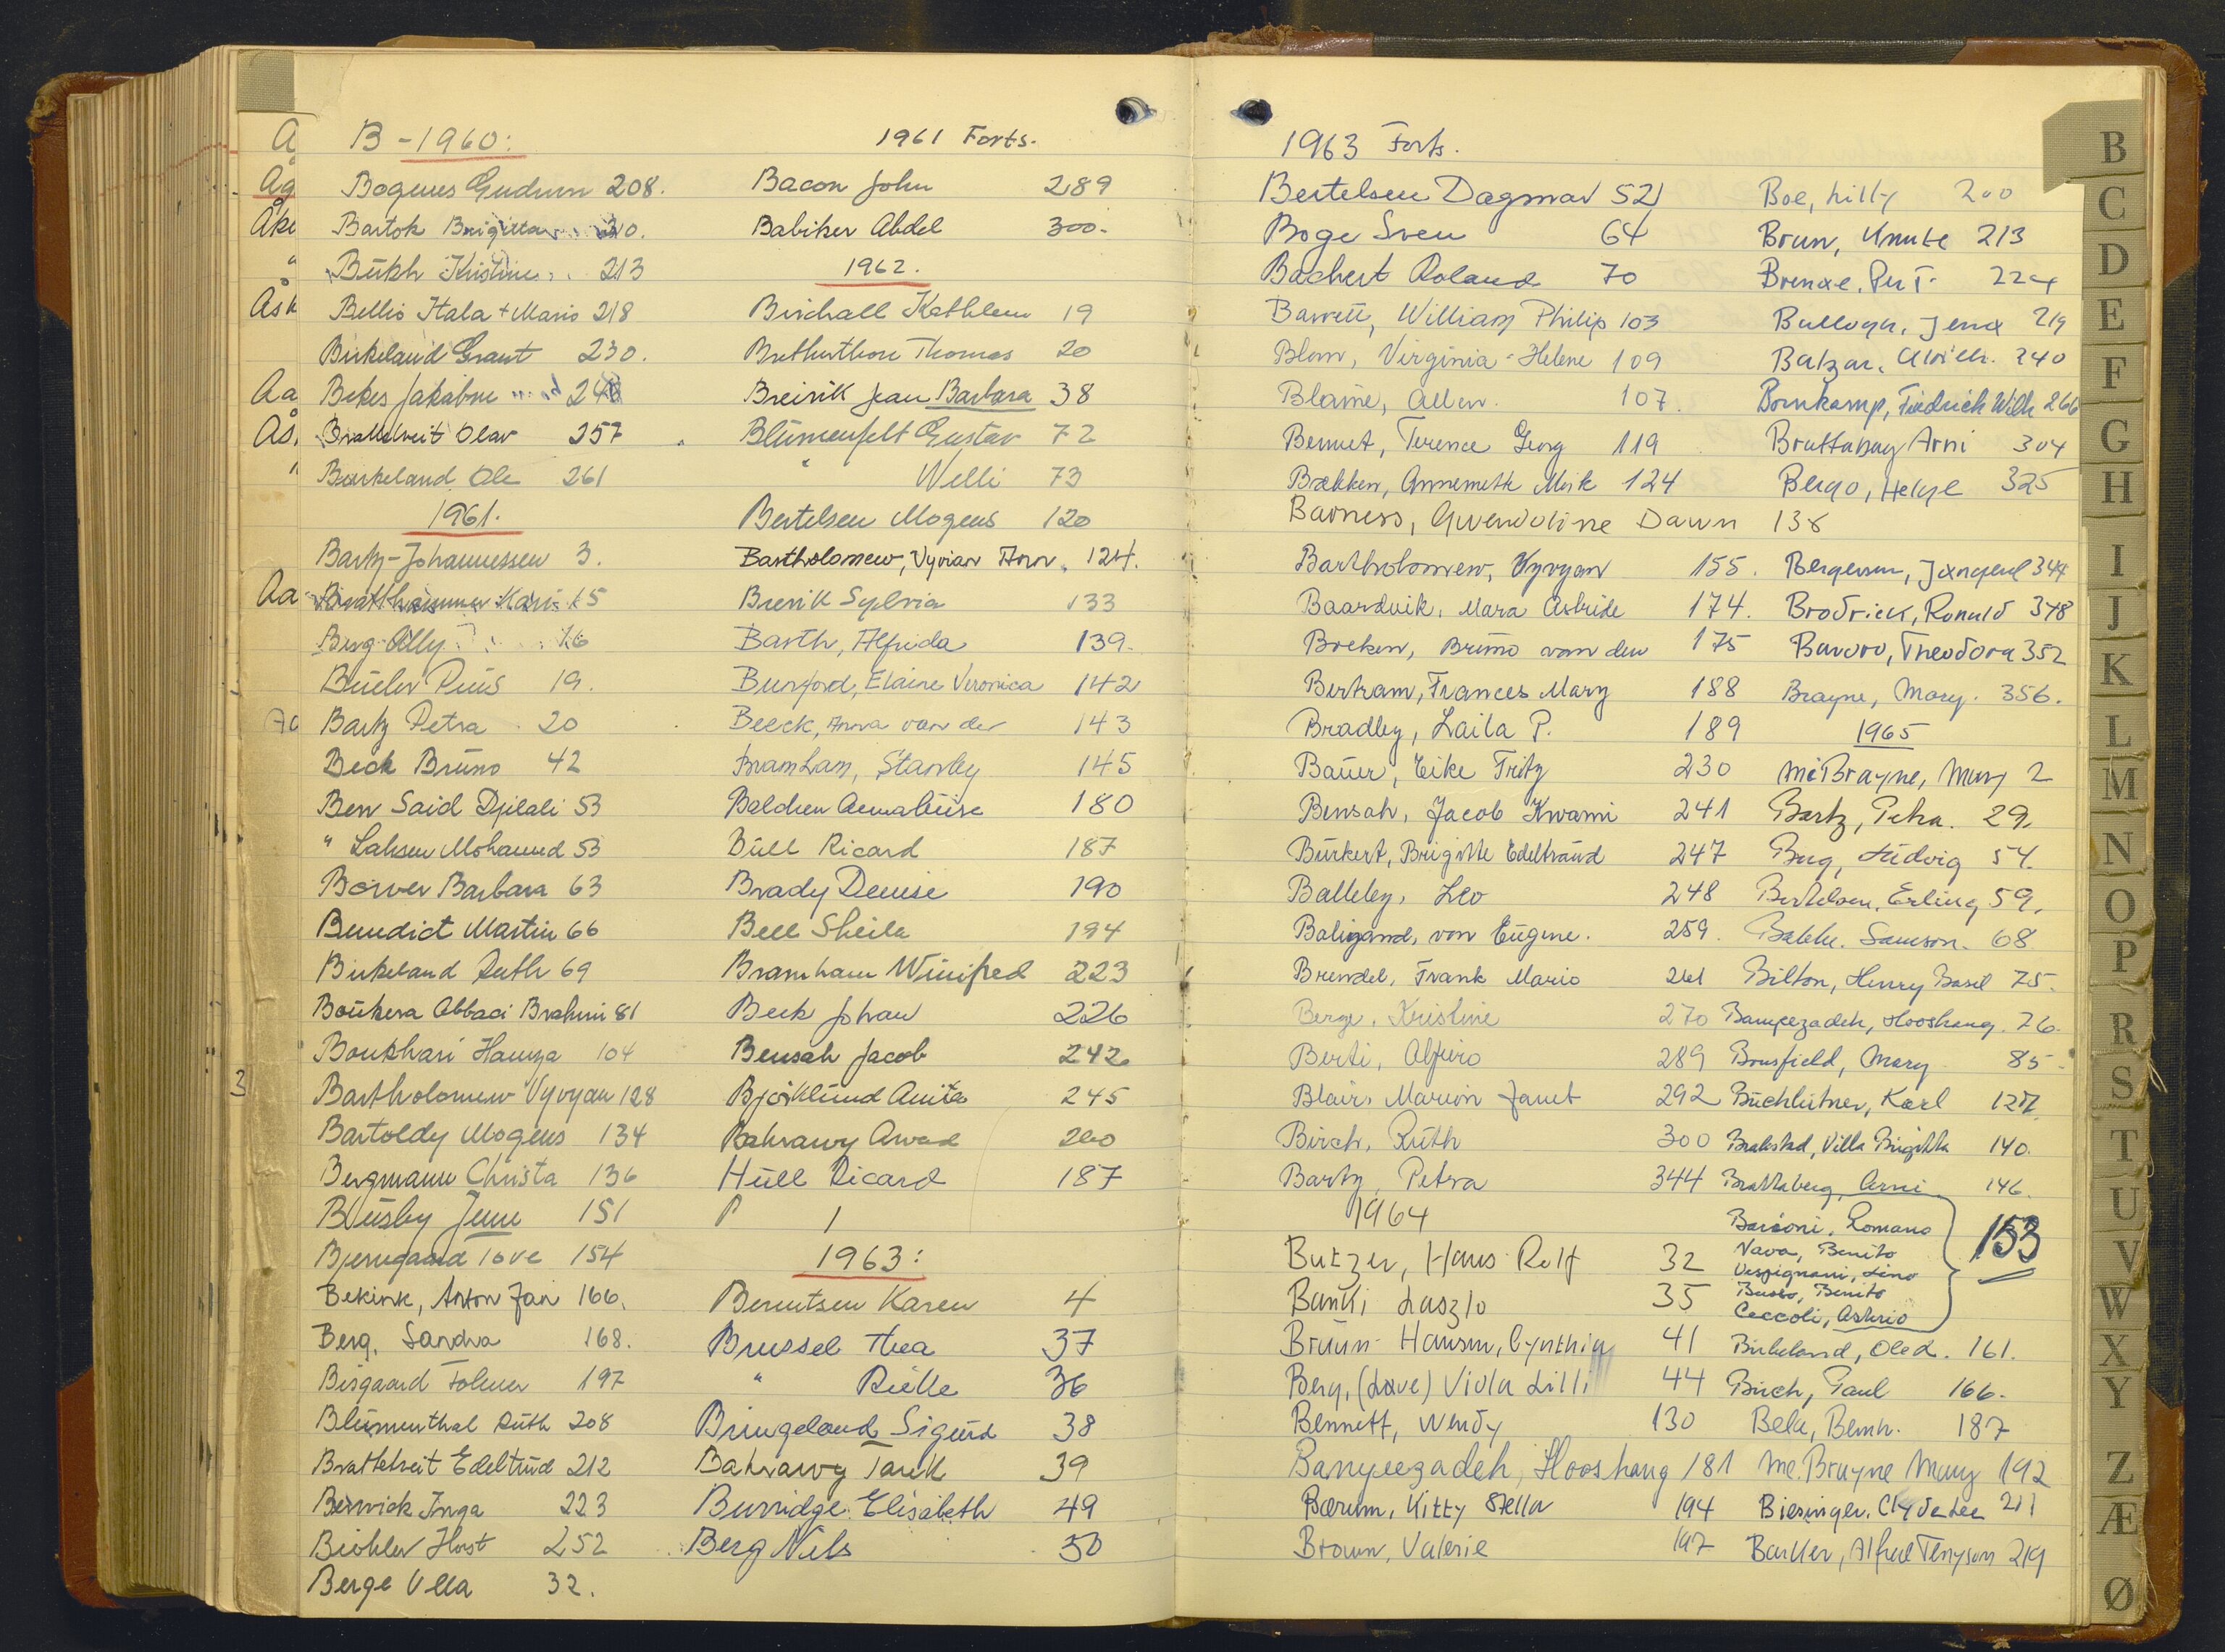 B - 1960:
Bogenes Gudrun 208.
Bartok Brigitta 210.
Bükh Kristine 213
Bellis Itala + Mario 218
Birkeland Grant 230.
Bekes Jakabne 248
Brattetveit Olav 257
Barkeland Ole 261
1961.
Bartz-Johannessen 3.
Bratthammer Kari 15
Berg Olly 16
Büeler Pius 19.
Bartz Petra 20
Beck Bruno 42
Ben Said Djilali 53
" Lahsen Mohamed 53
Borver Barbara 63
Benedict Martin 66
Birkeland Ruth 69
Boukera Abbaci Brahmi 81
Boukhari Hamza 104
Bartholomew Vyvyan 128
Bartoldy Mogens 134
Bergmann Christa 136
Büsby June 151
Bjerregaard Tove 154
Bekink, Anton Jan 166.
Berg, Sandra 168.
Bisgaard Folmer 197
Blumenthal Ruth 208
Brattetveit Edeltrud 212
Berwick Inga 223
Biohler Horst 252
Berge Ulla 32.
1961 Forts.
Bacon John 289
Babiker Abdel 300.
1962.
Birchall Kathleen 19
Thomas 20
Breivik Jean Barbara 38
Blumenfelt Gustav 72
" Willi 73
Bertelsen Mogens 120
Bartholomew, Vyvian Ann. 124.
Brevik Sylvia 133
Barth, Alfrida 139.
Burford, Elaine Veronica 142
Beeck, Anna van der 143
Bramham, Stanley 145
Baldken Annaluise 180
Büll Ricard 187
Brady Denise 190
Bell Sheila 194
Bramham Winifred 223
Beck Johan 226
Bensah Jacob 242
Björklund Anita 245
Bahrawy Awad 260
Hüll Ricard 187
1963:
Berentsen Karen 4
Brussel Thea 37
" Rielle 36
Bringeland Sigurd 38
Bahrawy Tarek 39
Burridge Elisabeth 49
Berg Nils 50
1963 Forts.
Bertelsen Dagmar 52
Boge Sven 64
Bachert Roland 70
Barrett, William Philip 103
Blom, Virginia-Helene 109
Blaine, Allen. 107.
Bennet, Terence Georg 119
Brekken, Annemette Mork 124
Barness, Gwendoline Dawn 138
Bartholomew, Vyvyan 155.
Baardvik, Mara Astride 174.
Breken, Bruno van den 175
Bertram, Frances Mary 188
Bradley, Laila P. 189
Bauer, Eike Fritz 230
Bensah, Jacob Kwami 241
Burkert, Brigitte Edeltraud 247
Balleley, Leo 248
Baligand, von Eugene. 259.
Brendel, Frank Mario 261
Berge, Kristine 270
Berti, Alfiero 289
Blair, Marion Janet 292
Birch, Ruth 300
Bartz, Petra 344
1964
Butzer, Hans Rolf 32
Banki Laszlo 35
Bruun-Hansen, Cynthia 41
Berg, (Love) Viola Lilli 44
Bennett, Wendy 130
Banyeezadeh, Hooshang 181
Bærum, Kitty Stella 194
Brown, Valerie 197
Boe, Lilly 200
Brun, Knute 213
Brenxe, Per T. 224
Bulloyn, Jena 219
Balzar, Alwiller. 240
Bornkamp, Friedrich Wilh 266
Brattabay Arni 304
Bergo, Helge 325
Bergersen, Ingjerd 344
Brodrick, Ronald 348
Bavoro, Theodora 352
Brayne, Mary. 356.
1965
McBrayne, Mary 2
Bartz, Petra. 29.
Berg, Ludvig 54.
Bertelsen, Erling 59.
Samson. 68
Bilton, Henry Basil 75.
Banyeezadeh, Hooshang. 76.
Bousfield, Mary 85.
Büchleitner, Karl 127
Brakstad, Villa Brigitta 140.
Brattaberg, Arni 146.
Barconi, Romano
Nava, Benito
Vespignani, Lino
Busso, Benito
Ceccoli, Asterio
153
Birkeland, Ole d. 161.
Birch, Paul 166.
Bela, Bernh. 187
Mc. Brayne Mary 192
Biesinger, Clyde Lee 211
Barker, Alfred Tenyson 219
A
Åg
Åke
"
Åsk
Aa
Ås.
"
Aa
3
B
C
D
E
F
G
H
I
J
K
L
M
N
O
P
R
S
T
U
V
W
X
Y
Z
Æ
Ø